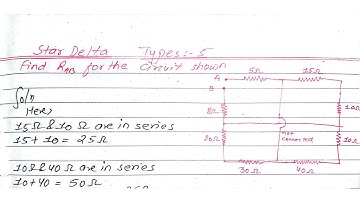 Star Delta Types:- 5
Find RAB for the circuit shown
Soln
Here,
15Ω & 10 Ω are in series
15 + 10 = 25Ω
10Ω & 40 Ω are in series
10 + 40 = 50Ω
A
B
5Ω
15Ω
10Ω
10Ω
not
connected
30Ω
40Ω